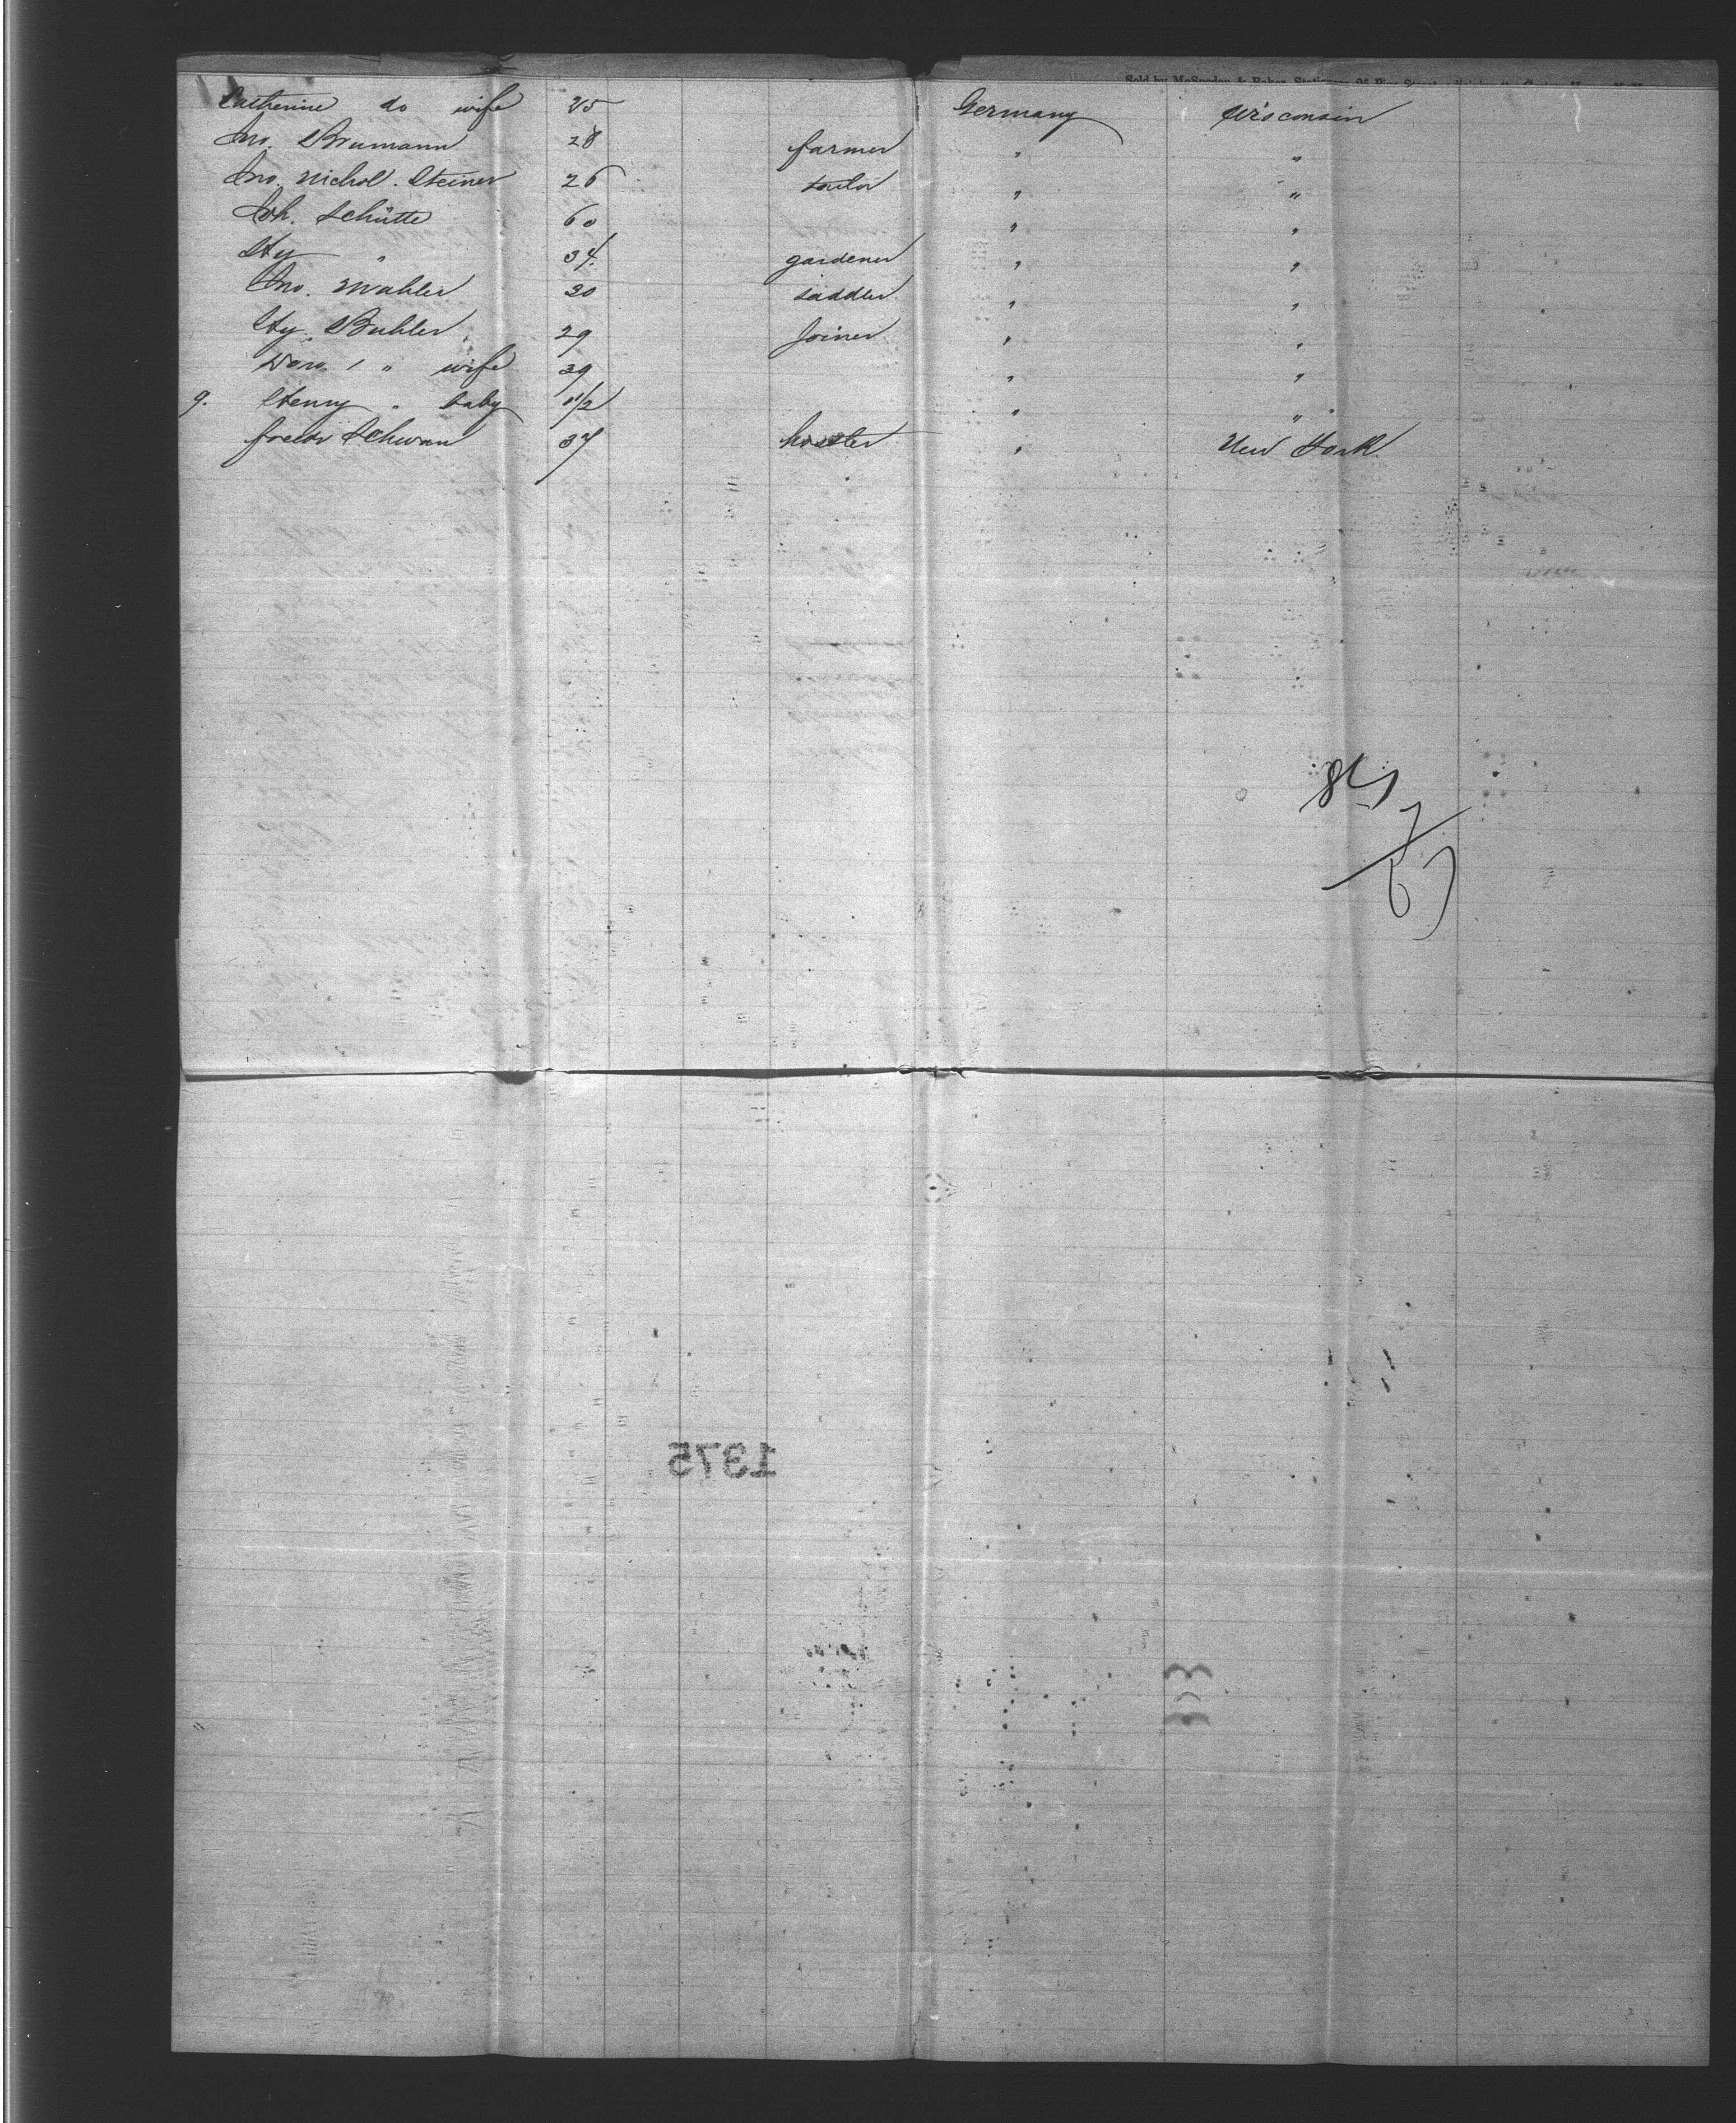 Sold by McSpedon & Baker, Stationers, 25 Pine Street
Catherine do wife 25 Germany Wisconsin
Jno. Brumann 28 farmer " "
Jno. Nichol. Steiner 26 tailor " "
Joh. Schütte 60 " "
Hy " 34 gardener " "
Jno. Mahler 30 saddler " "
Hy. Buhler 29 Joiner " "
Doro. " wife 39 " "
9. Henry " baby 1 1/2 " "
Schwan 37 hostler " New York
1375